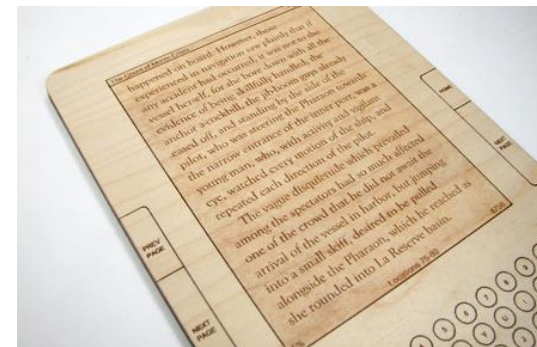 The Count of Monte Cristo
happened on board. However, those
experienced in navigation saw plainly that if
any accident had occurred, it was not to the
vessel herself, for she bore down with all the
evidence of being skilfully handled, the
anchor a-cockbill, the jib-boom guys already
eased off, and standing by the side of the
pilot, who was steering the Pharaon towards
the narrow entrance of the inner port, was a
young man, who, with activity and vigilant
eye, watched every motion of the ship, and
repeated each direction of the pilot.
The vague disquietude which prevailed
among the spectators had so much affected
one of the crowd that he did not await the
arrival of the vessel in harbor, but jumping
into a small skiff, desired to be pulled
alongside the Pharaon, which he reached as
she rounded into La Reserve basin.
Locations 75-80
8756
HOME
NEXT
PAGE
PREV
PAGE
NEXT
PAGE